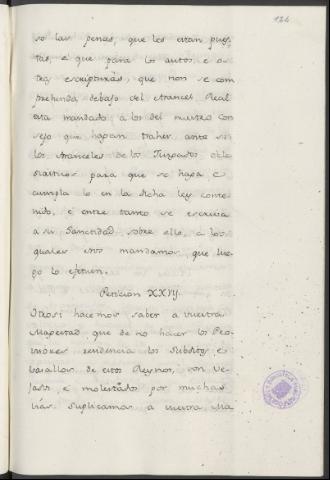 124
so las penas, que les estan pues-
tas, e que para los autos, e o-
tras escripturas, que non se com
prehenda debajo del Arancel Real
esta mandado a los del nuestro con
sejo que hagan traher ante si
los Aranceles de los Juzgados ecle
siasticos para que se haga e
cumpla lo en la dicha ley conte
nido, e entre tanto se escriva
a su Santidad sobre ello, a los
quales nos mandamos, que lue
go lo efetuen.
Peticion XXVIJ.
Otrosi hacemos saber a vuestra
Magestad que de no hacer los Pro
visores residencia los subditos e
vasallos de estos Reynos, son ve-
jados e molestados por muchas
vias suplicamos a vuestra Ma